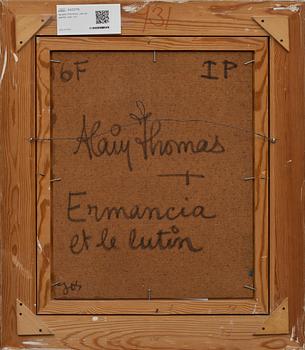 131
6F IP
Alain Thomas
Ermancia
et le lutin